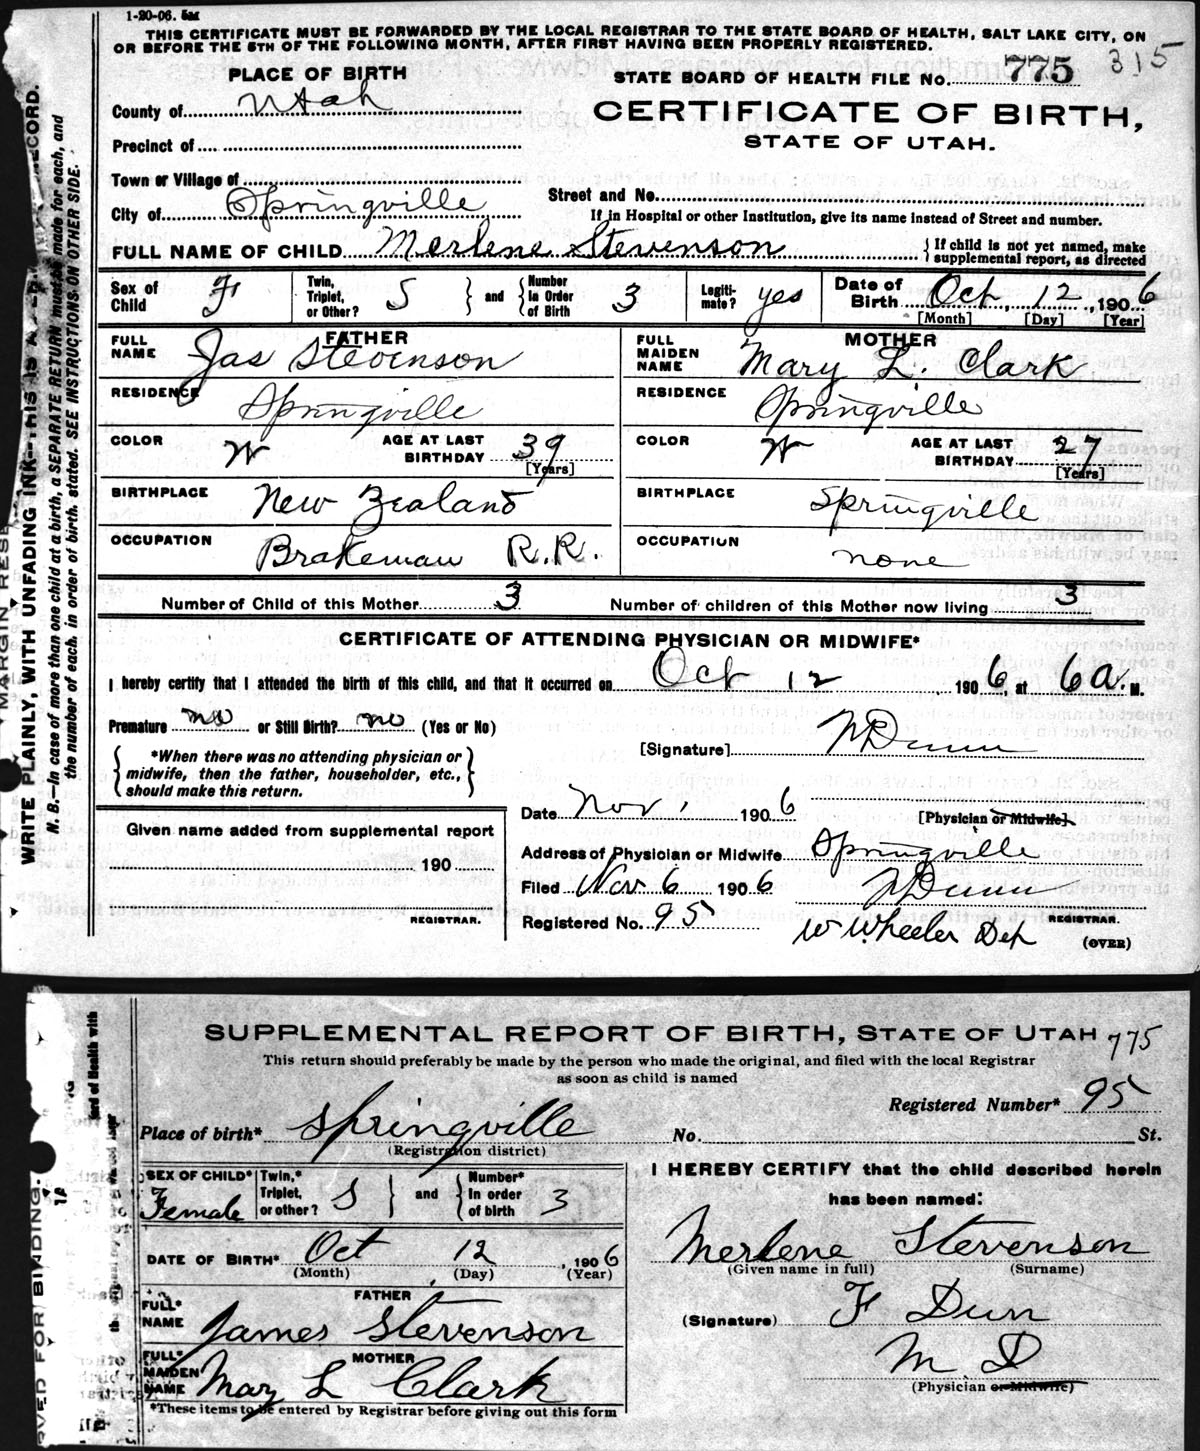 1-20-06. 5M
THIS CERTIFICATE MUST BE FORWARDED BY THE LOCAL REGISTRAR TO THE STATE BOARD OF HEALTH, SALT LAKE CITY, ON
OR BEFORE THE 5TH OF THE FOLLOWING MONTH, AFTER FIRST HAVING BEEN PROPERLY REGISTERED.
PLACE OF BIRTH
STATE BOARD OF HEALTH FILE No. 775 315
County of Utah
CERTIFICATE OF BIRTH,
STATE OF UTAH.
Precinct of
Town or Village of
City of Springville
Street and No.
If in Hospital or other Institution, give its name instead of Street and number.
FULL NAME OF CHILD Merlene Stevenson { If child is not yet named, make supplemental report, as directed
Sex of Child F
Twin, Triplet, or Other? S } and { Number in Order of Birth 3
Legitimate? yes
Date of Birth Oct, 12, 1906
[Month] [Day] [Year]
FATHER
FULL NAME Jas Stevenson
RESIDENCE Springville
COLOR W AGE AT LAST BIRTHDAY 39 [Years]
BIRTHPLACE New Zealand
OCCUPATION Brakeman R.R.
MOTHER
FULL MAIDEN NAME Mary L. Clark
RESIDENCE Springville
COLOR W AGE AT LAST BIRTHDAY 27 [Years]
BIRTHPLACE Springville
OCCUPATION none
Number of Child of this Mother 3 Number of children of this Mother now living 3
CERTIFICATE OF ATTENDING PHYSICIAN OR MIDWIFE*
I hereby certify that I attended the birth of this child, and that it occurred on Oct 12, 1906, at 6 A. M.
Premature no or Still Birth? no (Yes or No)
[Signature]
*When there was no attending physician or
midwife, then the father, householder, etc.,
should make this return.
Date Nov 1 1906
[Physician or Midwife]
Given name added from supplemental report
190
REGISTRAR.
Address of Physician or Midwife Springville
Filed Nov 6 1906
Registered No. 95
REGISTRAR.
W Wheeler Dep
(OVER)
WRITE PLAINLY, WITH UNFADING INK—THIS IS A RECORD.
N. B.—In case of more than one child at a birth, a SEPARATE RETURN must be made for each, and
the number of each, in order of birth, stated. SEE INSTRUCTIONS ON OTHER SIDE.
SUPPLEMENTAL REPORT OF BIRTH, STATE OF UTAH 775
This return should preferably be made by the person who made the original, and filed with the local Registrar
as soon as child is named
Registered Number* 95
Place of birth* Springville
(Registration district)
No. St.
SEX OF CHILD* Female
Twin,* Triplet, or other? S } and { Number* in order of birth 3
DATE OF BIRTH* Oct 12, 1906
(Month) (Day) (Year)
FATHER
FULL* NAME James Stevenson
MOTHER
FULL* MAIDEN NAME Mary L Clark
*These items to be entered by Registrar before giving out this form
I HEREBY CERTIFY that the child described herein
has been named:
Merlene Stevenson
(Given name in full) (Surname)
(Signature) F Dunn
M D
(Physician or Midwife)